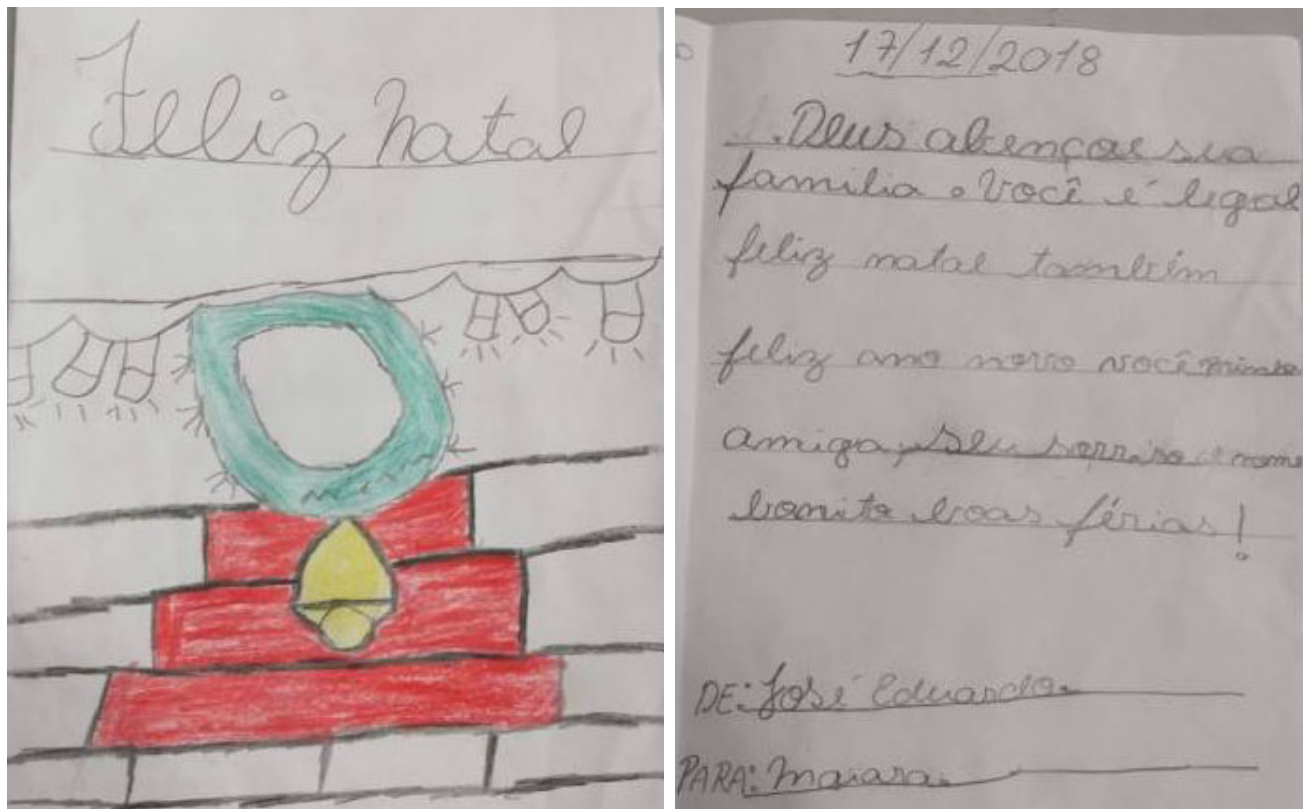 Feliz natal
17/12/2018
Deus abençoe sua
familia. Você é legal
feliz natal também
feliz ano novo você minha
amiga, seu sorriso e nome
bonito boas férias!
DE: José Eduardo
PARA: Maiara